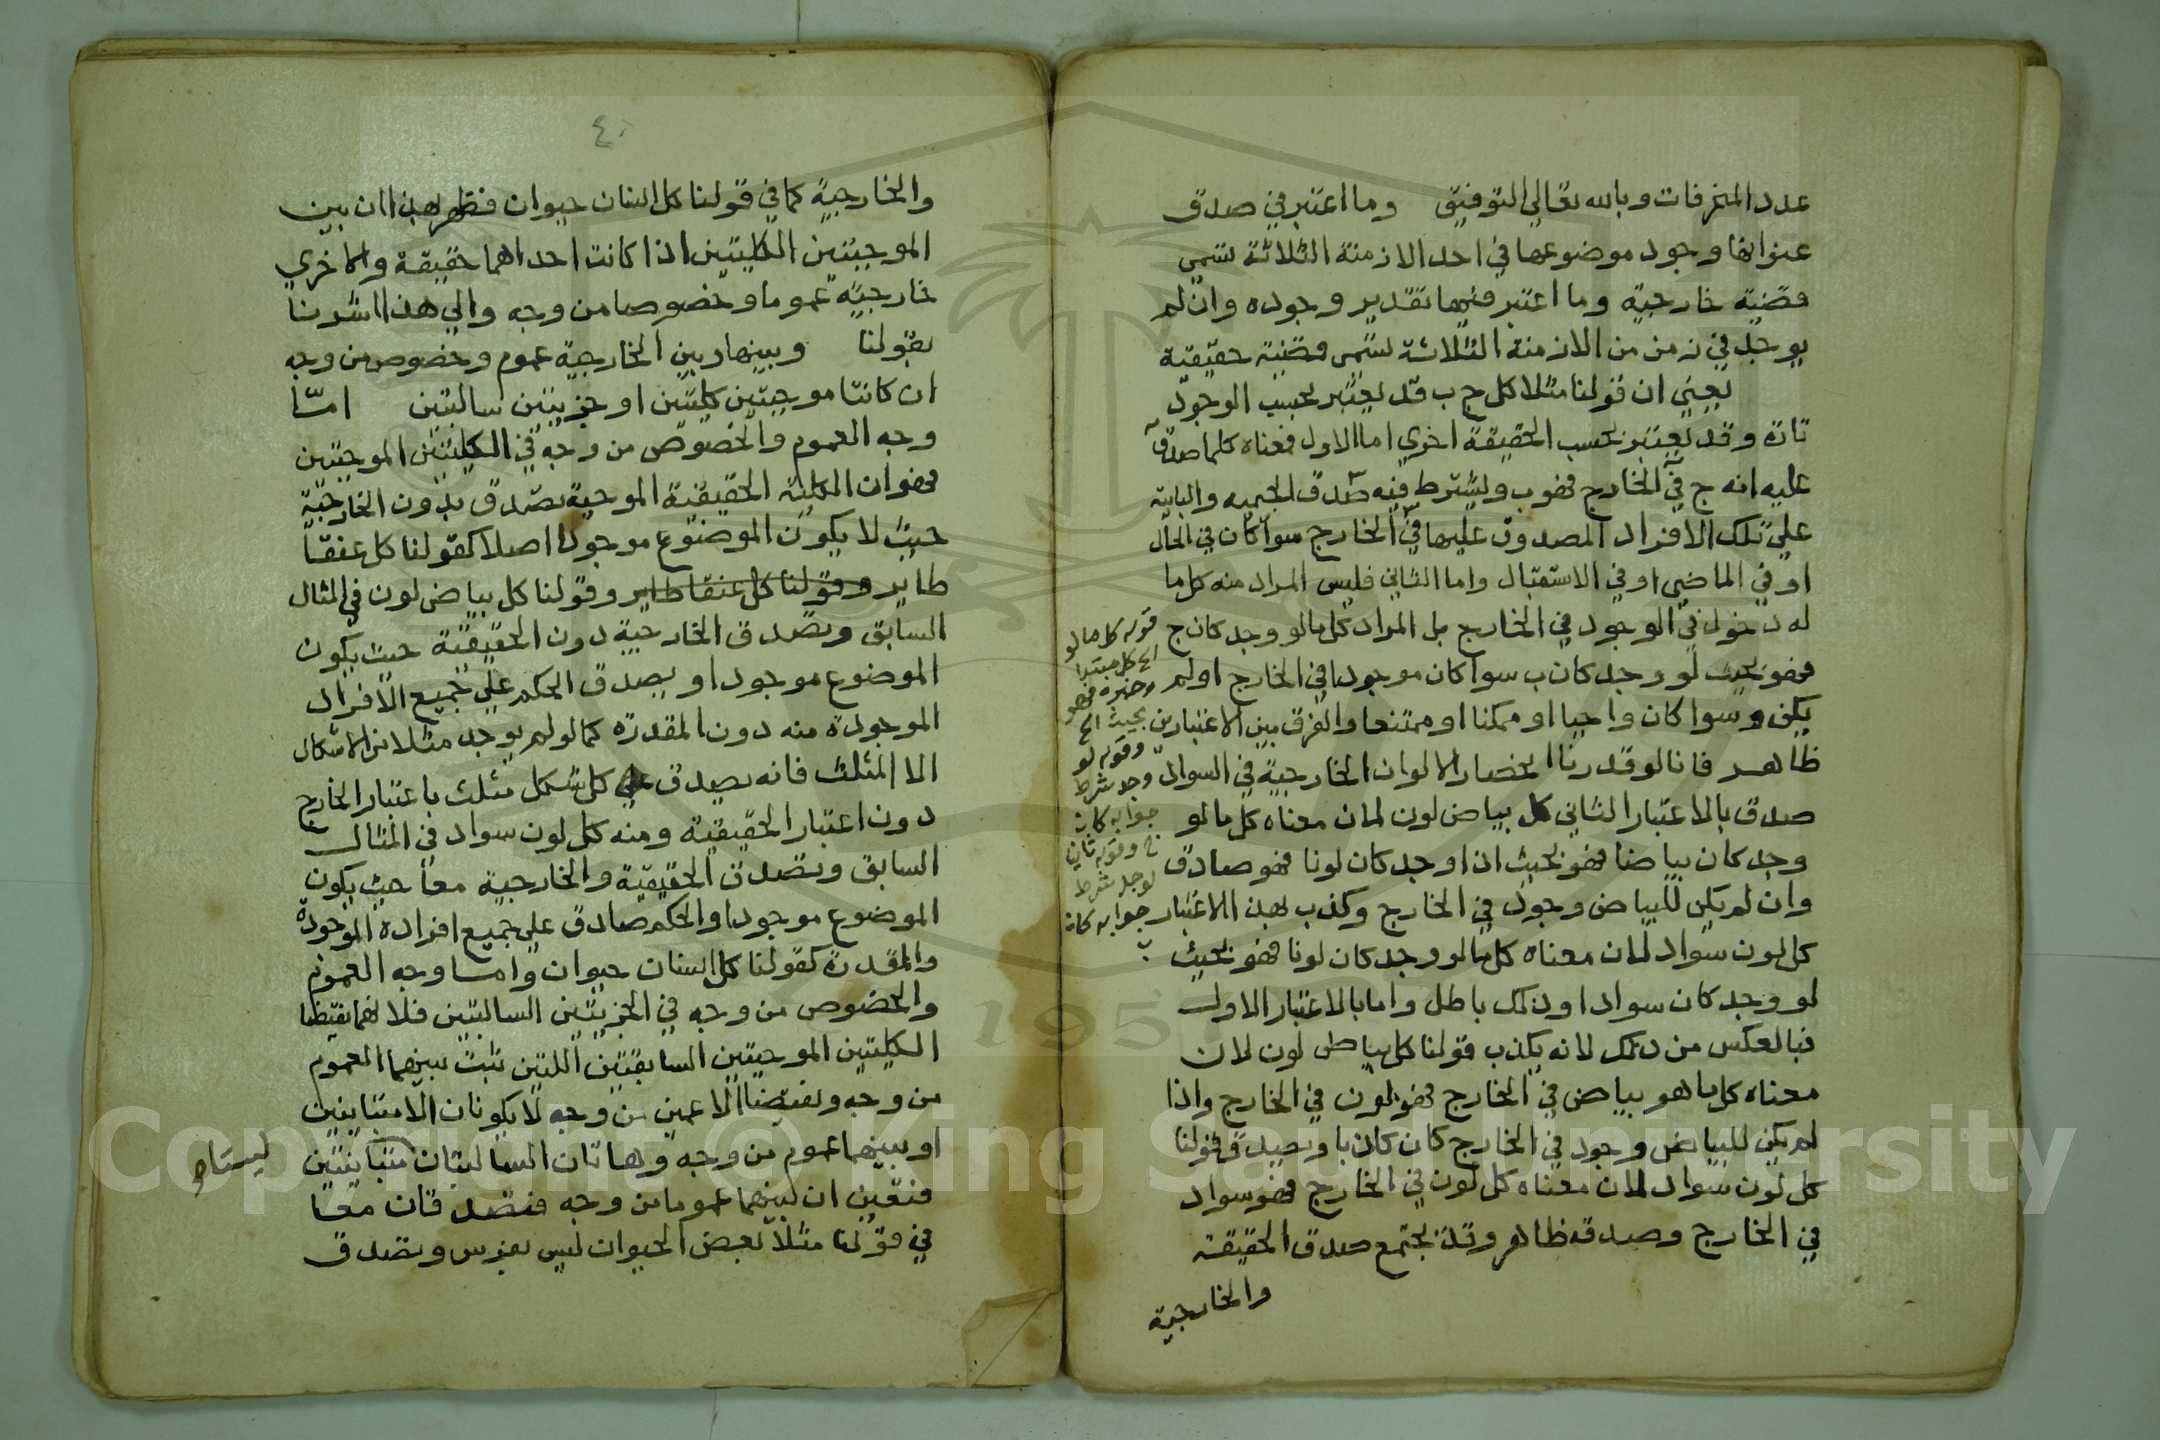 عدد المنحرفات وبالله تعالي التوفيق وما اعتبر في صدق
عنوانها وجود موضوعها في احد الازمنة الثلاثة تسمي
قضية خارجية وما اعتبر فيها تقدير وجوده وان لم
يوجد في زمن من الازمنة الثلاثة تسمى قضية حقيقية
يعني ان قولنا مثلا كل ج ب قد يعتبر بحسب الوجود
تارة وقد يعتبر بحسب الحقيقة اخري اما الاول فمعناه كلما صدق
عليه انه ج في الخارج فهو ب ويشترط فيه صدق الجيميه والبايية
علي تلك الافراد المصدوق عليها في الخارج سوا كان في الحال
او في الماضي او في الاستقبال واما الثاني فليس المراد منه كل ما
له دخول في الوجود في الخارج بل المراد كل ما لو وجد كان ج
فهو بحيث لو وجد كان ب سوا كان موجودا في الخارج او لم
يكن وسوا كان واجبا او ممكنا او ممتنعا والفرق بين الاعتبارين
ظاهر فانا لو قدرنا انحصار الالوان الخارجية في السواد
صدق بالاعتبار الثاني كل بياض لون لان معناه كل ما لو
وجد كان بياضا فهو بحيث اذا وجد كان لونا فهو صادق
وان لم يكن للبياض وجود في الخارج وكذب بهذا الاعتبار
كل لون سواد لان معناه كل ما لو وجد كان لونا فهو بحيث
لو وجد كان سوادا وذلك باطل واما بالاعتبار الاول
فبالعكس من ذلك لانه يكذب قولنا كل بياض لون لان
معناه كل ما هو بياض في الخارج فهو لون في الخارج واذا
لم يكن للبياض وجود في الخارج كان كاذبا ويصدق قولنا
كل لون سواد لان معناه كل لون في الخارج فهو سواد
في الخارج وصدقه ظاهر وقد يجتمع صدق الحقيقية
والخارجية
قوله كل ما لو
الخ كل مبتدا
وخبره فهو
بحيث الخ
وقوله لو
وجد شرط
جوابه كان
ج وقوله ثانيا
لو وجد شرط
جوابه كان
ب
٤٠
والخارجية كما في قولنا كل انسان حيوان فظهر بهذا ان بين
الموجبتين الكليتين اذا كانت احداهما حقيقية والاخري
خارجية عموما وخصوصا من وجه والي هذا اشرنا
بقولنا وبينها وبين الخارجية عموم وخصوص من وجه
ان كانتا موجبتين كليتين او جزيتين سالبتين امّا
وجه العموم والخصوص من وجه في الكليتين الموجبتين
فهو ان الكلية الحقيقية الموجبة تصدق بدون الخارجية
حيث لا يكون الموضوع موجودا اصلا كقولنا كل عنقا
طاير وقولنا كل عنقا طاير وقولنا كل بياض لون في المثال
السابق وتصدق الخارجية دون الحقيقية حيث يكون
الموضوع موجودا ويصدق الحكم علي جميع الافراد
الموجودة منه دون المقدرة كما لو لم يوجد مثلا من الاشكال
الا المثلث فانه يصدق كل شكل مثلث باعتبار الخارج
دون اعتبار الحقيقية ومنه كل لون سواد في المثال
السابق وتصدق الحقيقية والخارجية معا حيث يكون
الموضوع موجودا والحكم صادق علي جميع افراده الموجودة
والمقدرة كقولنا كل انسان حيوان وامّا وجه العموم
والخصوص من وجه في الجزيتين السالبتين فلانهما نقيضا
الكليتين الموجبتين السابقتين اللتين ثبت بينهما العموم
من وجه ونقيضا الاعمين من وجه لا يكونان الا متباينين
او بينهما عموم من وجه وهاتان السالبتان متباينتين
ليستا
فتعين ان بينهما عموما من وجه فتصدقان معا
في قولنا مثلا بعض الحيوان ليس بفرس وتصدق
Copyright © King Saud University
1957